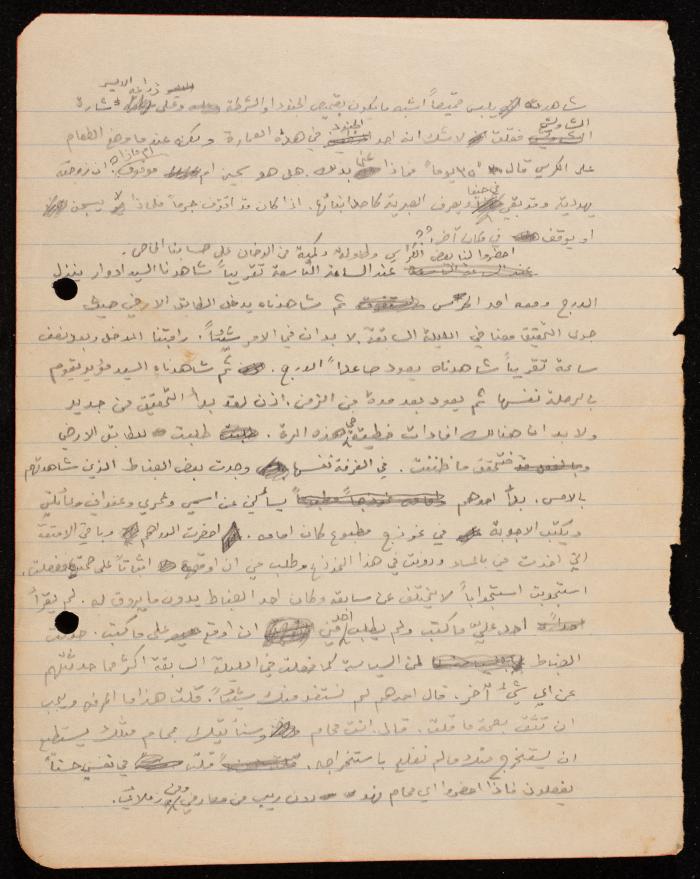 ذراعه الايسر
شاهدت يلبس قميصاً اشبه ما يكون بقميص الجنود او الشرطة وعلى شارة
الشاويش فقلت لا شك انه احد الجنود في هذه العمارة ولكن عندما وضع الطعام
على الكرسي قال "٣٥ يوماً" فماذا عنى بذلك. هل هو سجين ام موقوف ام ماذا؟ ان زوجته
يهودية وقد بقي في حيفا ويعرف العبرية كأحد ابنائها. اذا كان قد اقترف جرماً فلماذا لا يسجن
او يوقف في مكان آخر؟؟
احضروا لنا بعض الكراسي وطاولة وكمية من الدخان على حسابنا الخاص.
عند الساعة التاسعة تقريباً شاهدنا السيد ادوار ينزل
الدرج ومعه احد الحرس ثم شاهدناه يدخل الطابق الارضي حيث
جرى التحقيق معنا في الليلة السابقة. لا بد ان في الامر شيئاً. راقبنا المدخل وبعد نصف
ساعة تقريباً شاهدناه يعود صاعداً الدرج. ثم شاهدنا السيد يقوم
بالرحلة نفسها ثم يعود بعد مدة من الزمن. اذن لقد بدأ التحقيق من جديد
ولا بد ان هنالك افادات خطية في هذه المرة. طلبت للطابق الارضي
فتحقق ما ظننت. في الغرفة نفسها وجدت بعض الضباط الذين شاهدتهم
بالامس. بدأ احدهم يسألني عن اسمي وعمري وعنواني وعائلتي
ويكتب الاجوبة في نموذج مطبوع كان امامه. احضرت الدراهم وباقي الامتعة
التي اخذت مني بالمساء ودونت في هذا النموذج وطلب مني ان اوقع اثباتاً على صحتها ففعلت.
استجوبت استجواباً لا يختلف عن سابقه وكان احد الضباط يدون ما يروق له. لم يقرأ
احد عليّ ما كتب ولم يطلب احد مني ان اوقع على ما كتب. حدثت
الضباط عن السياسة كما فعلت في الليلة السابقة اكثر مما حدثتهم
عن اي شيء آخر. قال احدهم لم نستفد منك شيئاً. قلت هذا ما اعرفه ويجب
ان تثق بصحة ما قلت. قال. انت محام وسنأتيك بمحام مثلك يستطيع
ان يستخرج منك ما لم نفلح باستخراجه. قلت في نفسي حسناً
يفعلون فاذا احضروا اي محام فهو دون ريب من معارفي ومن زملائي.